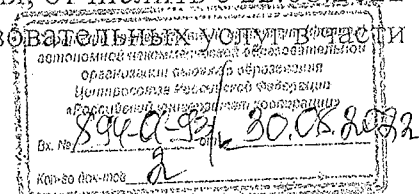 зовательных услуг в части
автономной некоммерческой образовательной
организации высшего образования
Центросоюза Российской Федерации
«Российский университет кооперации»
Вх. № 894-О-93 от 30.08.2022
Кол-во док-тов 2